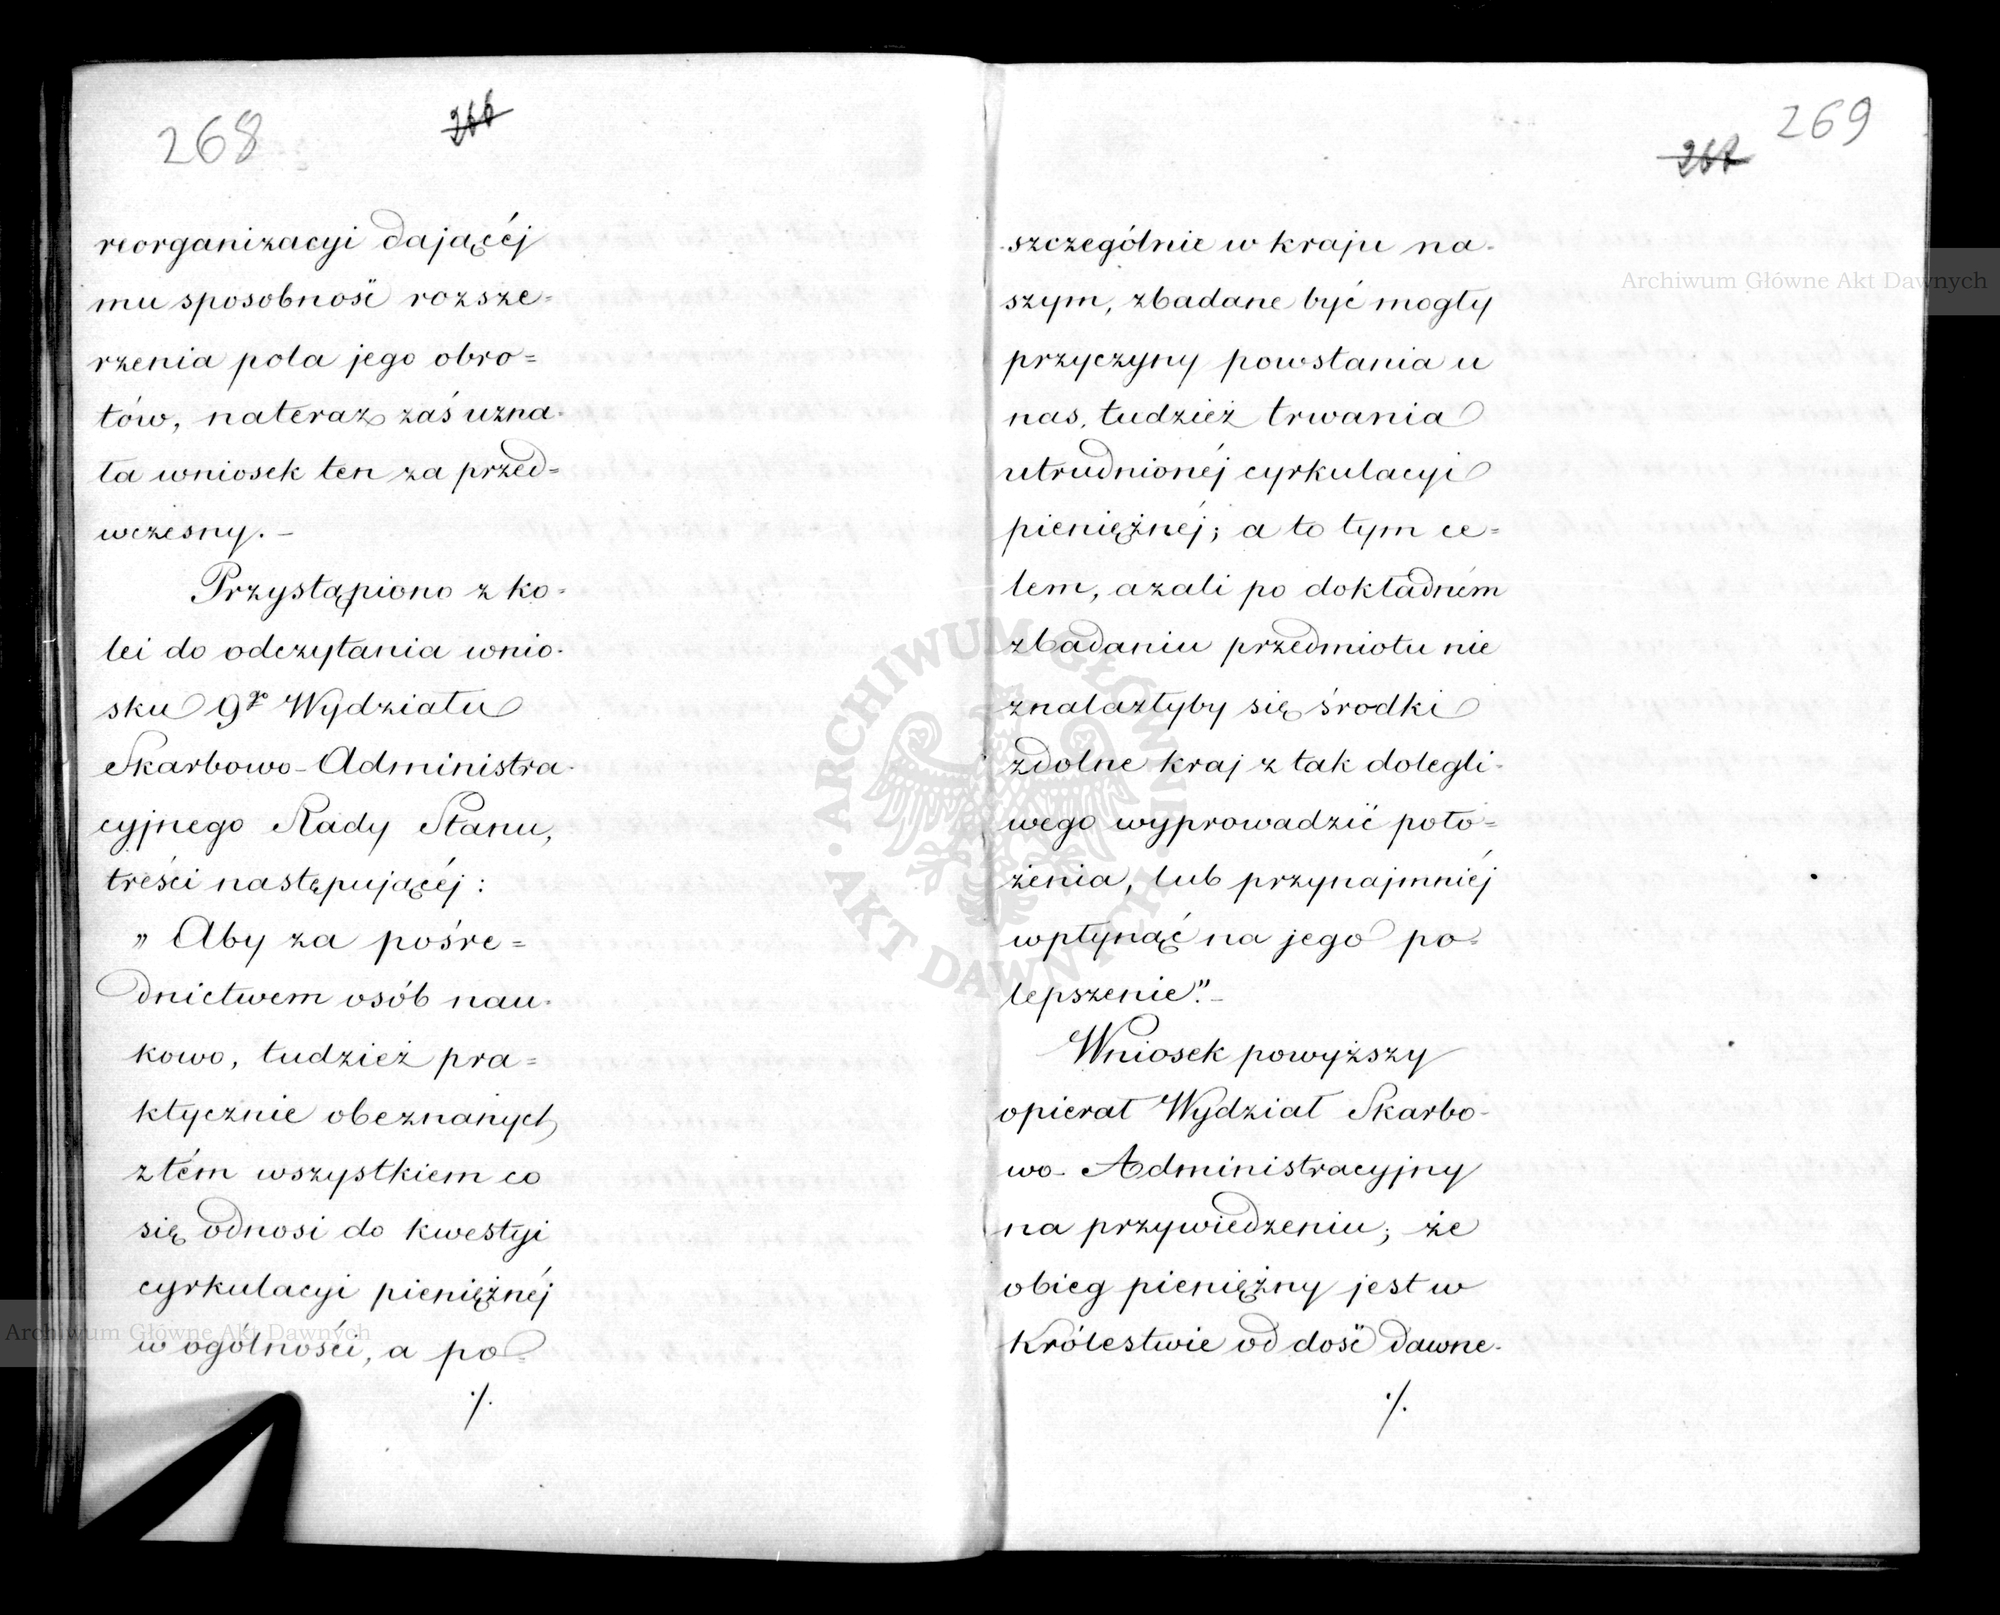 268
266
reorganizacyi dającéj
mu sposobność rozsze=
rzenia pola jego obro=
tów, nateraz zaś uzna-
ła wniosek ten za przed=
wczesny. —
Przystąpiono z ko-
lei do odczytania wnio-
sku 9go Wydziału
Skarbowo-Administra-
cyjnego Rady Stanu,
treści następującéj:
„Aby za pośre=
dnictwem osób nau-
kowo, tudzież pra=
ktycznie obeznanych
z tém wszystkiem co
się odnosi do kwestyi
cyrkulacyi pieniężnéj
w ogólności, a po
./.
269
267
szczególnie w kraju na-
szym, zbadane być mogły
przyczyny powstania u
nas, tudzież trwania
utrudnionéj cyrkulacyi
pieniężnéj; a to tym ce=
lem, azali po dokładném
zbadaniu przedmiotu nie
znalazłyby się środki
zdolne kraj z tak dolegli-
wego wyprowadzić poło=
żenia, lub przynajmniéj
wpłynąć na jego po-
lepszenie." —
Wniosek powyższy
opierał Wydział Skarbo-
wo-Administracyjny
na przywiedzeniu; że
obieg pieniężny jest w
Królestwie od dość dawne-
./.
Archiwum Główne Akt Dawnych
ARCHIWUM GŁÓWNE · AKT DAWNYCH ·
Archiwum Główne Akt Dawnych